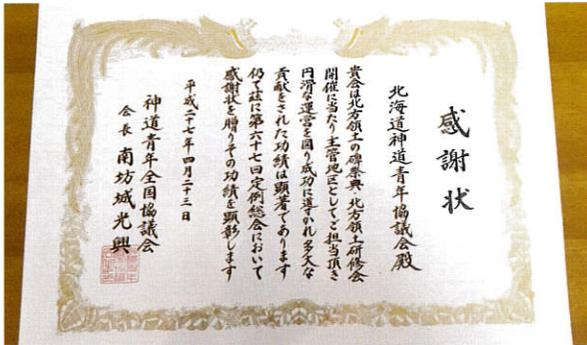 感謝状
北海道神道青年協議会殿
貴会は北方領土の碑祭典・北方領土研修会
開催に当り主管地区としてご担当頂き
円滑な運営を図り成功に導かれ多大な
貢献をされた功績は顕著であります
仍て茲に第六十七回定例総会において
感謝状を贈りその功績を顕彰します
平成二十七年四月二十三日
神道青年全国協議会
会長 南坊城光興